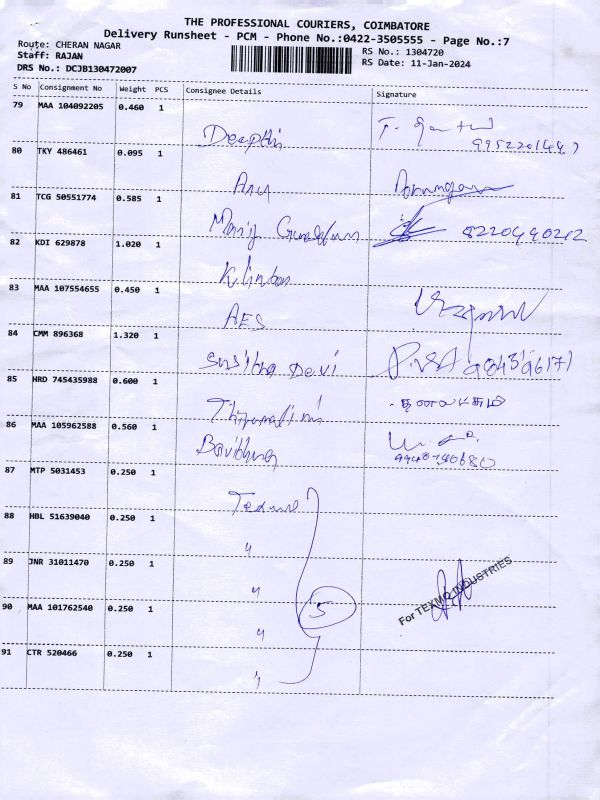 THE PROFESSIONAL COURIERS, COIMBATORE
Delivery Runsheet - PCM - Phone No.:0422-3505555 - Page No.:7
Route: CHERAN NAGAR
RS No.: 1304720
Staff: RAJAN
RS Date: 11-Jan-2024
DRS No.: DCJB130472007
S No Consignment No Weight PCS Consignee Details Signature
79 MAA 104092205 0.460 1
Deepthi
80 TKY 486461 0.095 1
Aru
81 TCG 50551774 0.585 1
8220490212
82 KDI 629878 1.020 1
83 MAA 107554655 0.450 1
AES
84 CMM 896368 1.320 1
Susitha Devi
85 HRD 745435988 0.600 1
86 MAA 105962588 0.560 1
9940740680
87 MTP 5031453 0.250 1
88 HBL 51639040 0.250 1
"
89 JNR 31011470 0.250 1
"
90 MAA 101762540 0.250 1
"
5
For TEXMO INDUSTRIES
91 CTR 520466 0.250 1
"